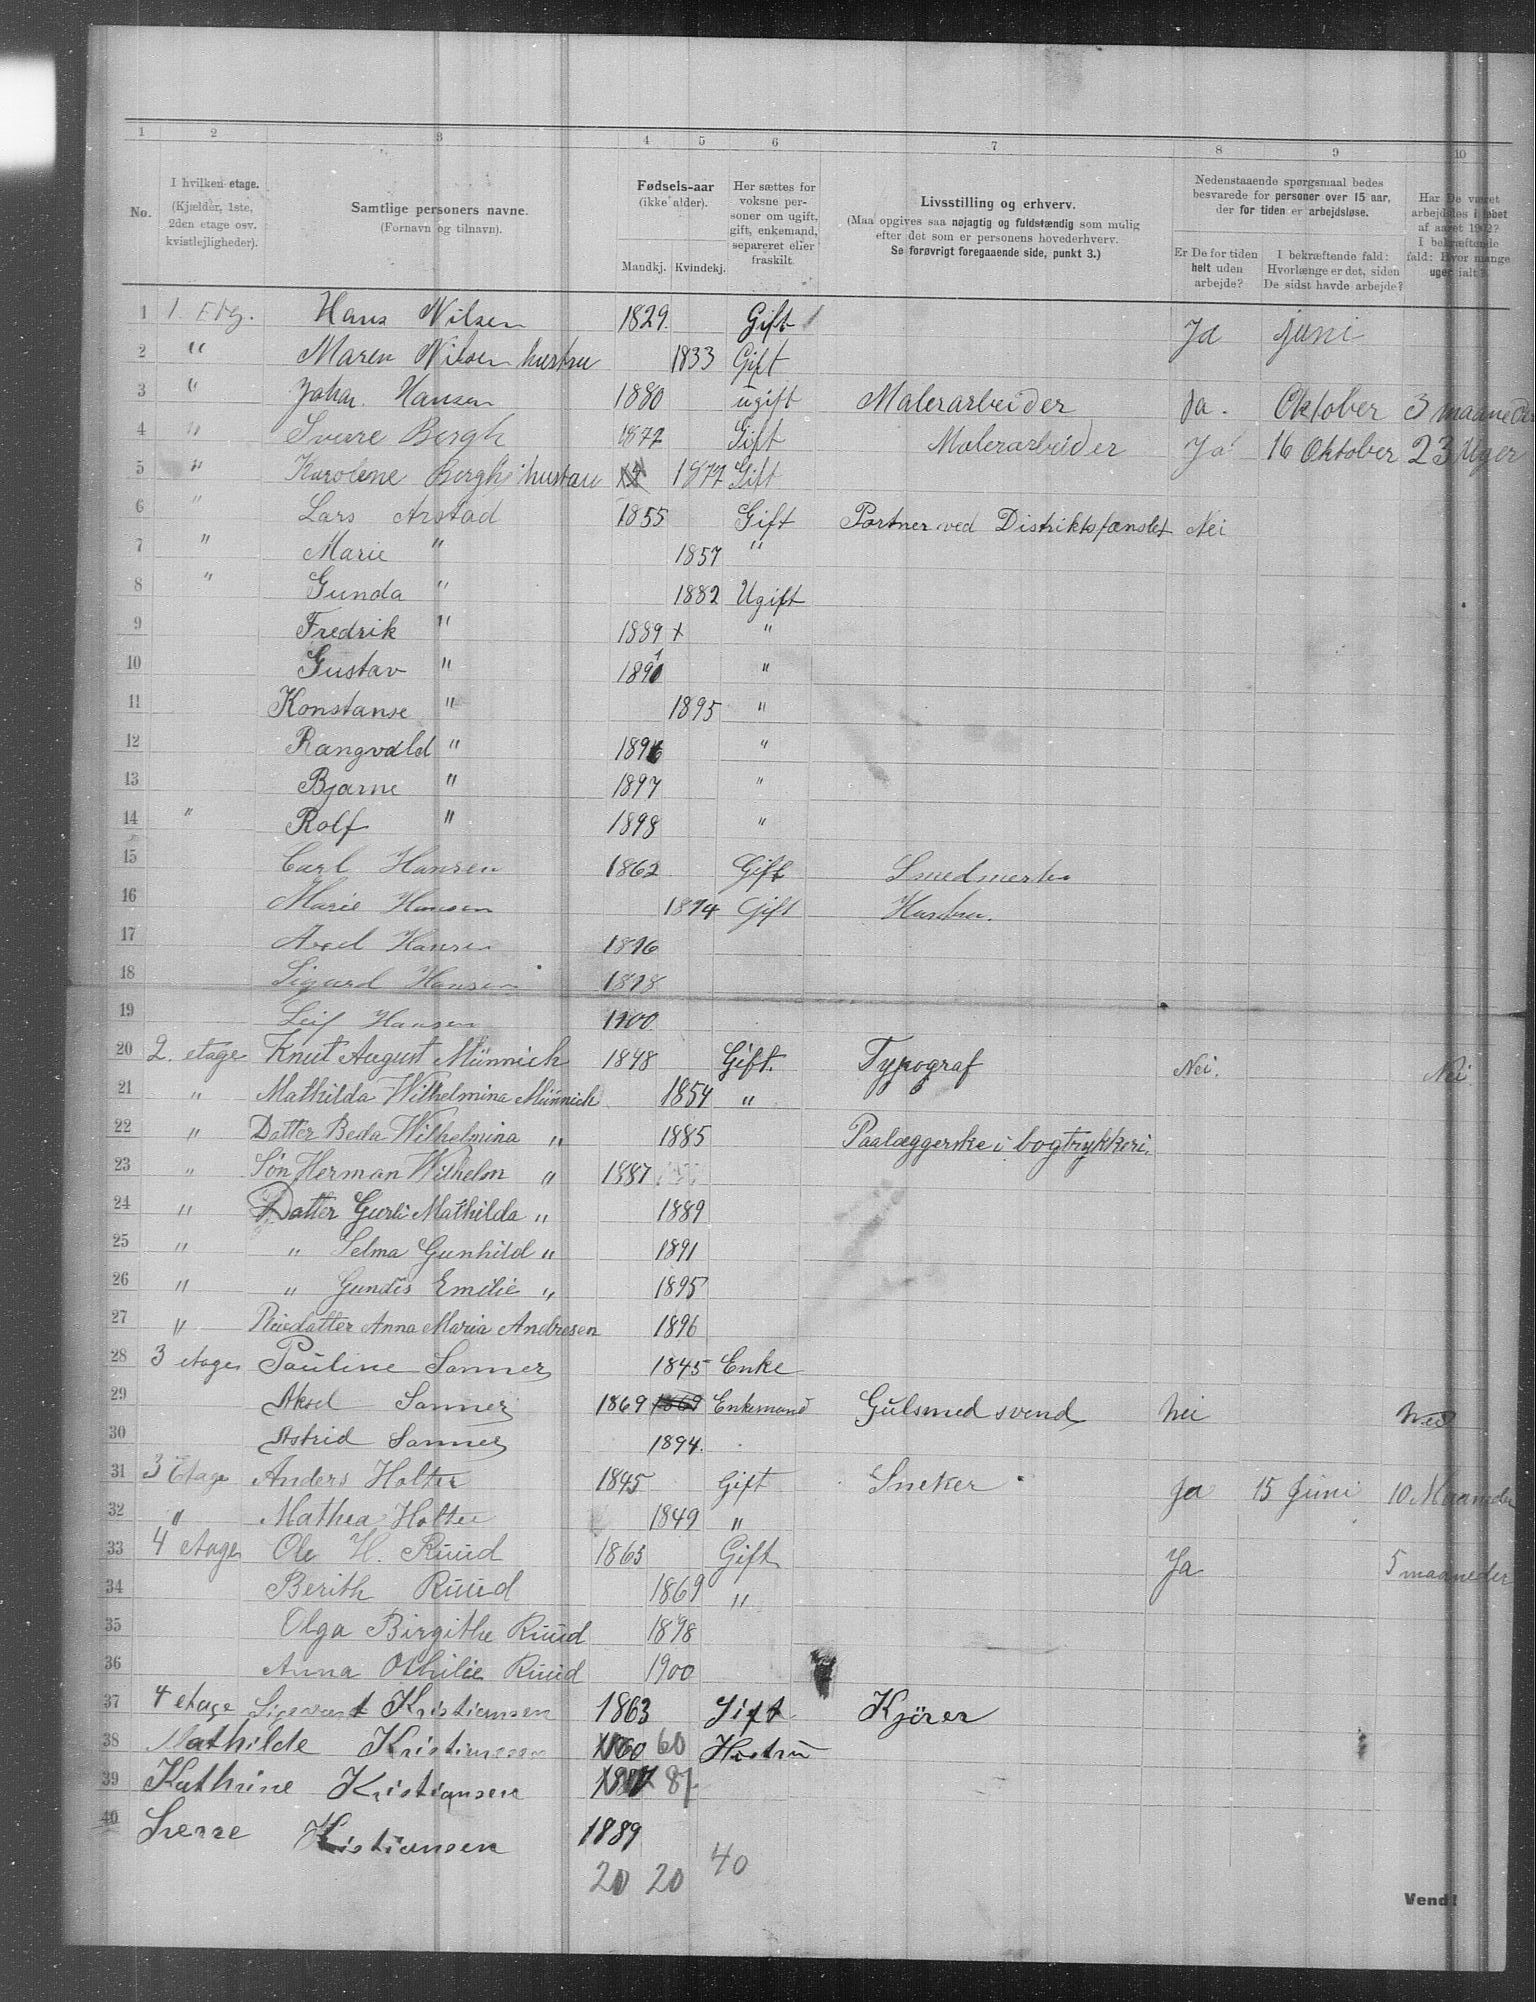 1 2 3 4 5 6 7 8 9 10
No.
I hvilken etage. (Kjælder, 1ste, 2den etage osv. kvistlejligheder).
Samtlige personers navne. (Fornavn og tilnavn).
Fødsels-aar (ikke alder). Mandkj. Kvindekj.
Her sættes for voksne personer om ugift, gift, enkemand, separeret eller fraskilt.
Livsstilling og erhverv. (Maa opgives saa nøjagtig og fuldstændig som mulig efter det som er personens hovederhverv. Se forøvrigt foregaaende side, punkt 3.)
Nedenstaaende spørgsmaal bedes besvarede for personer over 15 aar, der for tiden er arbejdsløse.
Er De for tiden helt uden arbejde?
I bekræftende fald: Hvorlænge er det, siden De sidst havde arbejde?
Har De været arbejdsløs i løbet af aaret 1902? I bekræftende fald: Hvor mange uger ialt?
1 1. Etg. Hans Nilsen 1829. Gift Ja juni
2 " Maren Nilsen hustru 1833 Gift
3 " Johan Hansen 1880 ugift Malerarbeider Ja. Oktober 3 maaneder
4 " Sverre Bergh 1877 Gift Malerarbeider Ja 16 Oktober 23 Uger
5 " Karoline Bergh hustru 1877 Gift
6 " Lars Arstad 1855 Gift Portner ved Distriktsfænslet Nei
7 " Marie " 1857 "
8 " Gunda " 1882 Ugift
9 Fredrik " 1889 + "
10 Gustav " 1891 "
11 Konstanse " 1895 "
12 Rangvald " 1896 "
13 Bjarne " 1897 "
14 " Rolf " 1898 "
15 Carl Hansen 1862 Gift
16 Marie Hansen 1874 Gift Hustru.
17 Axel Hansen 1896
18 Sigurd Hansen 1898
19 Leif Hansen 1900
20 2. etage Knut August Münnich 1848 Gift. Typograf Nei. Nei
21 " Mathilda Wilhelmina Münnich 1854 "
22 " Datter Beda Wilhelmina " 1885 Paalæggerske i bogtrykkeri.
23 " Søn Herman Wilhelm " 1887
24 " Datter Gurli Mathilda " 1889
25 " " Selma Gunhild " 1891
26 " " Gundis Emilie " 1895
27 " Pleiedatter Anna Maria Andresen 1896
28 3 etage Pauline Sanner 1845 Enke
29 Aksel Sanner 1869 1869 Enkemand Gulsmed svend Nei Nei
30 Astrid Sanner 1894.
31 3 Etage Anders Holter 1845 Gift Sneker Ja 15 Juni 10 Maaneder
32 " Mathea Holter 1849 "
33 4 etage Ole H. Ruud 1865 Gift Ja 5 maaneder
34 Berith Ruud 1869 "
35 Olga Birgithe Ruud 1898
36 Anna Othilie Ruud 1900
37 4 etage Kristiansen 1863 Gift Kjører
38 Mathilde Kristiansen 1860 60 Hustru
39 Kathrine Kristiansen 1887 87
40 Sverre Kristiansen 1889
20 20 40
Vend!